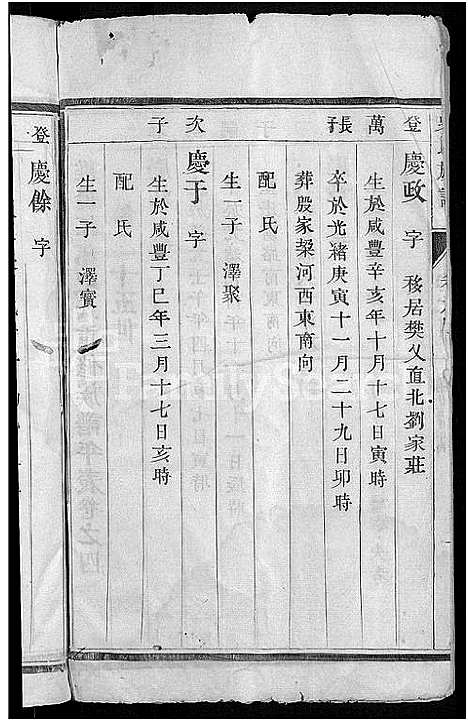 登萬長子
慶政 字 移居樊乂直北劉家莊
生於咸豐辛亥年十月十七日寅時
卒於光緒庚寅十一月二十九日卯時
葬殷家梁河西東南向
配氏
生一子 澤聚
次子
慶于 字
生於咸豐丁巳年三月十七日亥時
配氏
生一子 澤實
登
慶餘 字